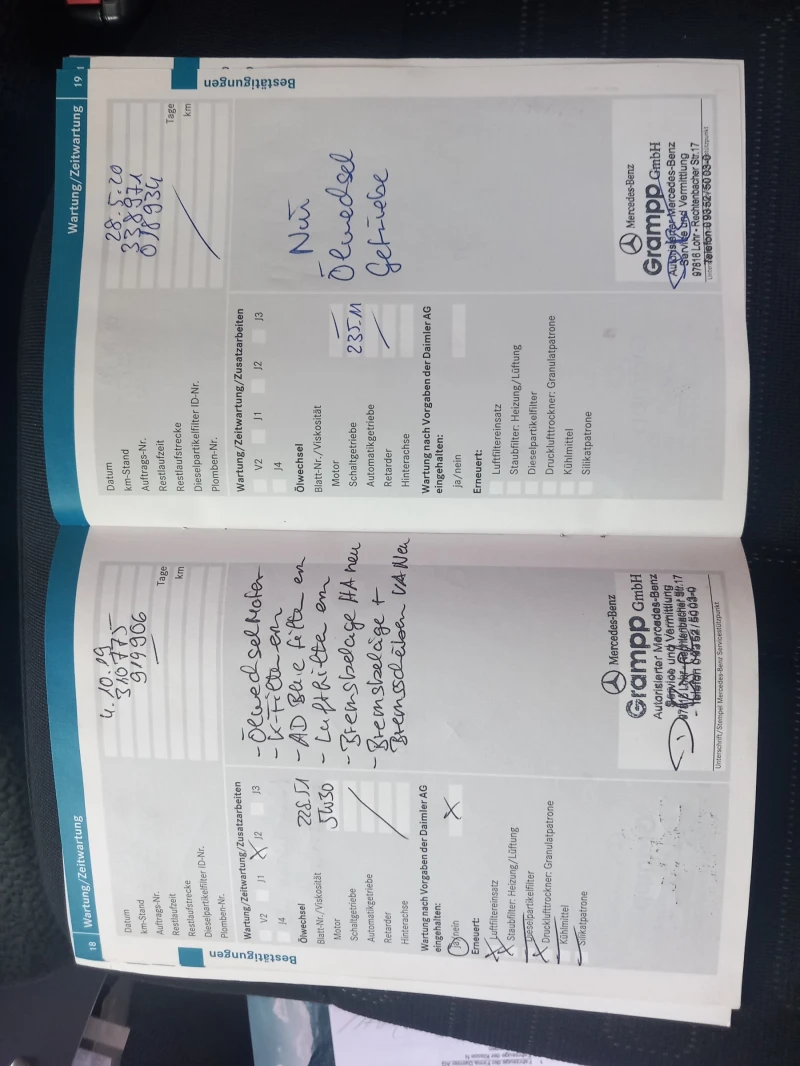 18 Wartung/Zeitwartung
Datum 4.10.19
km-Stand 310775
Auftrags-Nr. 914906
Restlaufzeit — Tage
Restlaufstrecke km
Dieselpartikelfilter ID-Nr.
Plomben-Nr.
Wartung/Zeitwartung/Zusatzarbeiten
V2 J1 X J2 J3
J4
Ölwechsel
Blatt-Nr./Viskosität 228.51
Motor 5W30
Schaltgetriebe
Automatikgetriebe
Retarder
Hinterachse
- Ölwechsel Motor
- K-Filter en
- AD Blue Filter en
- Luftfilter en
- Bremsbeläge HA neu
- Bremsbeläge +
Bremsscheiben VA Neu
Wartung nach Vorgaben der Daimler AG
eingehalten:
ja/nein X
Erneuert:
X Luftfiltereinsatz
X Staubfilter: Heizung/Lüftung
Dieselpartikelfilter
X Drucklufttrockner: Granulatpatrone
Kühlmittel
Silikatpatrone
Mercedes-Benz
Grampp GmbH
Autorisierter Mercedes-Benz
Service und Vermittlung
97816 Lohr - Rechtenbacher Str.17
Telefon 0 93 52 / 50 03-0
Unterschrift/Stempel Mercedes-Benz Servicestützpunkt
Bestätigungen
Wartung/Zeitwartung 19
Datum 28.5.20
km-Stand 338971
Auftrags-Nr. 018934
Restlaufzeit Tage
Restlaufstrecke km
Dieselpartikelfilter ID-Nr.
Plomben-Nr.
Wartung/Zeitwartung/Zusatzarbeiten
V2 J1 J2 J3
J4
Ölwechsel
Blatt-Nr./Viskosität
Motor —
Schaltgetriebe 235.11
Automatikgetriebe
Retarder
Hinterachse
Nur
Ölwechsel
Getriebe
Wartung nach Vorgaben der Daimler AG
eingehalten:
ja/nein
Erneuert:
Luftfiltereinsatz
Staubfilter: Heizung/Lüftung
Dieselpartikelfilter
Drucklufttrockner: Granulatpatrone
Kühlmittel
Silikatpatrone
Mercedes-Benz
Grampp GmbH
Autorisierter Mercedes-Benz
Service und Vermittlung
97816 Lohr - Rechtenbacher Str.17
Telefon 0 93 52 / 50 03-0
Bestätigungen